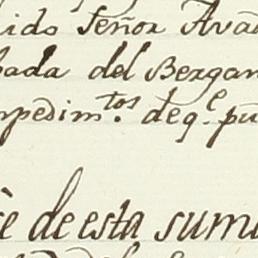 lido Señor Avad
bada del Bergan
mpedim.tos de q.e pu
se de esta suma